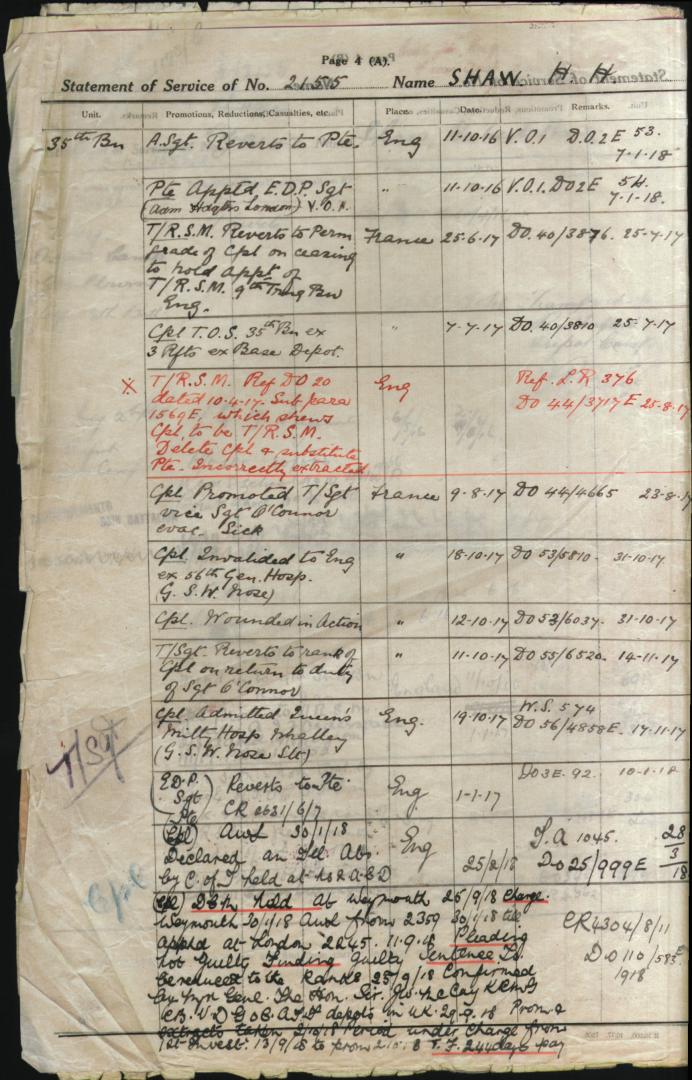 Page 4 (A).
Statement of Service of No. 2155 Name SHAW H H
Unit. Promotions, Reductions, Casualties, etc. Place. Date. Remarks.
35th Bn A.Sgt. Reverts to Pte. Eng 11-10-16 V.O.1 D.O.2E 53.
7-1-18
Pte Apptd E.D.P. Sgt " 11-10-16 V.O.1. DO2E 54.
(Adm Hdqtrs London) V.O.1. 7-1-18.
T/R.S.M. Reverts to Perm France 25-6-17 DO. 40/3876. 25-7-17
grade of Cpl on ceasing
to hold Appt of
T/R.S.M. 9th Trng Bn
Eng.
Cpl T.O.S. 35th Bn ex " 7-7-17 DO. 40/3810 25-7-17
3 Rfts ex Base Depot.
※ T/R.S.M. Ref DO 20 Eng Ref. L.R 376
dated 10-4-17. Sub para DO 44/3717 E 25-8-17
1569E, which shews
Cpl to be T/R.S.M.
Delete Cpl & substitute
Pte. Incorrectly extracted
Cpl Promoted T/Sgt France 9-8-17 DO 44/4665 23-8-17
vice Sgt O'Connor
evac. Sick
Cpl Invalided to Eng " 18-10-17 DO 53/5810- 31-10-17.
ex 56th Gen. Hosp.
G.S.W. Nose)
Cpl. Wounded in Action " 12-10-17 DO 53/6037. 31-10-17
T/Sgt. Reverts to rank of " 11-10-17 DO 55/6520. 14-11-17
Cpl on return to duty
of Sgt O'Connor
Cpl. Admitted Queen's Eng. 19-10-17 W.S. 574
Milt Hosp Whalley DO 56/4858E. 17-11-17
(G.S.W. Nose Slt)
T/Sgt
E.D.P. Sgt Reverts to Pte Eng 1-1-17 DO3E. 92. 10-1-18
CR 2631/6/7
(Cpl) Awl 30/1/18 Eng J.A 1045. 28
Declared an Ill Abs 25/2/18 DO25/999E 3
by C. of I held at 18
Cpl
(Cpl) DCM held at Weymouth 25/9/18 Charge.
Weymouth 30/1/18 Awl from 2359 30/1/18 till CR4304/8/11
apptd at London 2245. 11.9.18 Pleading DO110/583E
Not Guilty Finding Guilty Sentence To 1918
be reduced to the Ranks 25/9/18 Confirmed
by Myr Genl. The Hon. Sir. Jw. McCay KCMG
CB. VD GOC. A.I.F depots in UK. 29.9.18 Prom &
extracts taken 2/10/18 Period under Charge from
1st Invest. 13/9/18 to prom 2.10.18 T.F. 244 days pay